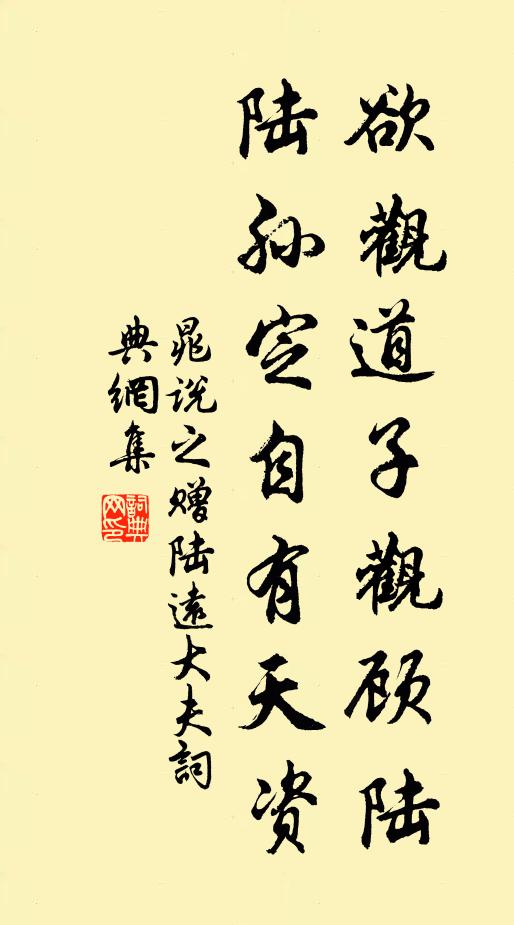 欲觀道子觀顾陆
陆孙定自有天资
晁说之赠陆遠大夫詞
典網集
詞典网印